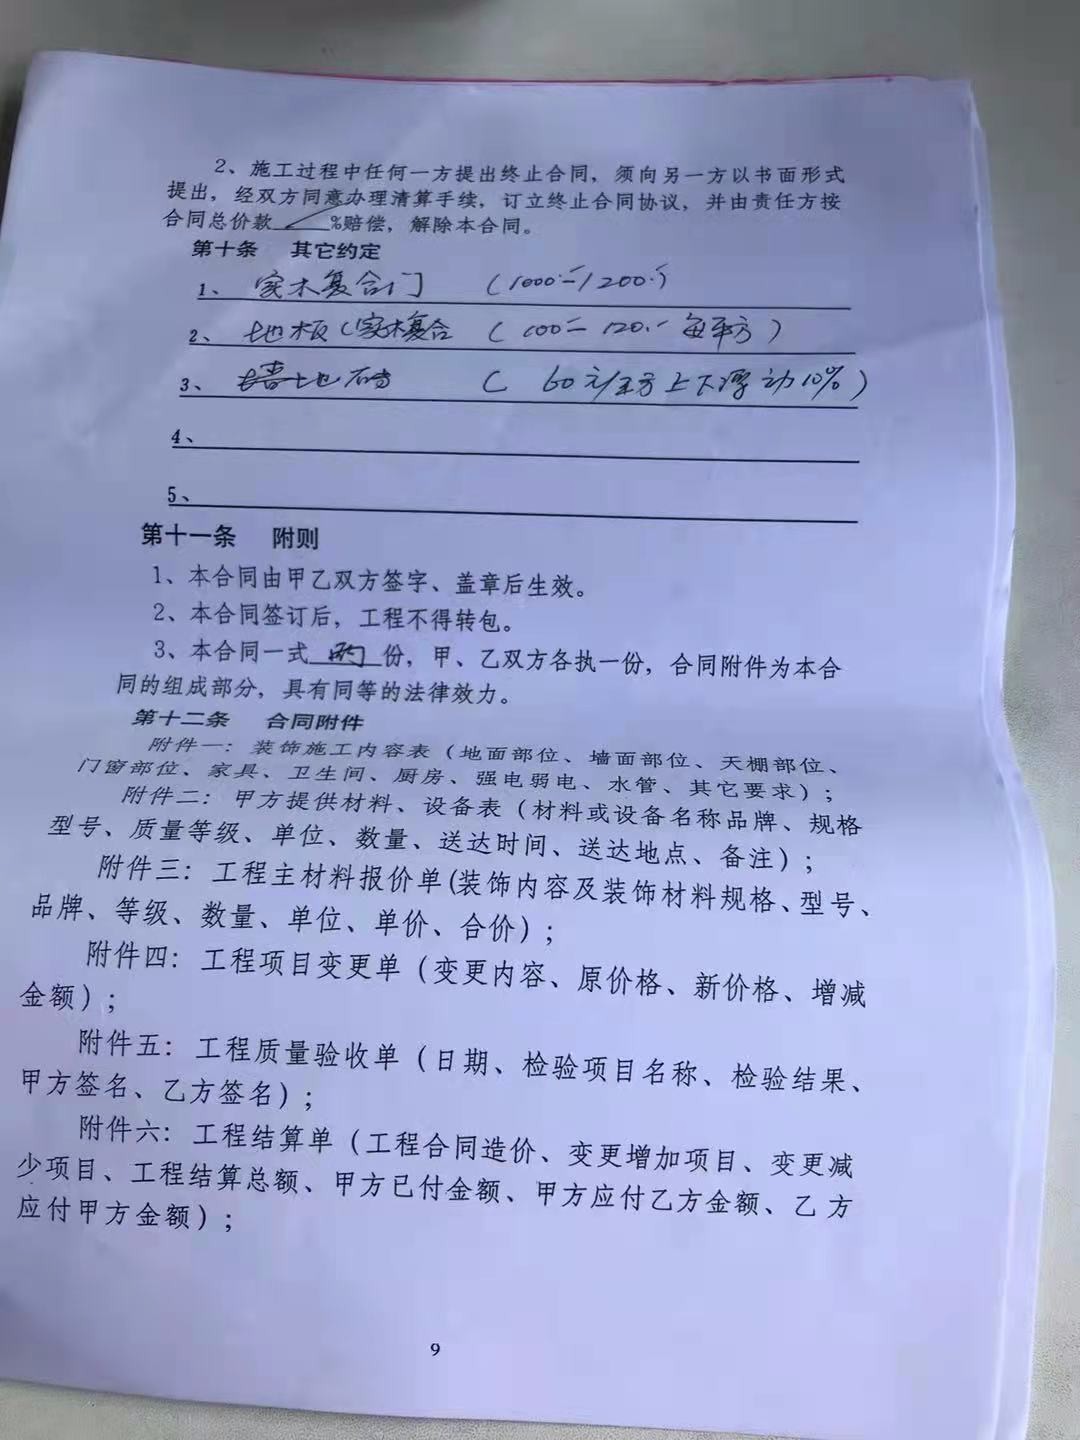 2、施工过程中任何一方提出终止合同，须向另一方以书面形式
提出，经双方同意办理清算手续，订立终止合同协议，并由责任方按
合同总价款 %赔偿，解除本合同。
第十条 其它约定
1、实木复合门 (1000.—1200.)
2、地板(实木复合 (100— 120.— 每平方)
3、墙地砖 ( 60元/平方上下浮动10%)
4、
5、
第十一条 附则
1、本合同由甲乙双方签字、盖章后生效。
2、本合同签订后，工程不得转包。
3、本合同一式 两 份，甲、乙双方各执一份，合同附件为本合
同的组成部分，具有同等的法律效力。
第十二条 合同附件
附件一：装饰施工内容表（地面部位、墙面部位、天棚部位、
门窗部位、家具、卫生间、厨房、强电弱电、水管、其它要求）；
附件二：甲方提供材料、设备表（材料或设备名称品牌、规格
型号、质量等级、单位、数量、送达时间、送达地点、备注）；
附件三：工程主材料报价单(装饰内容及装饰材料规格、型号、
品牌、等级、数量、单位、单价、合价）；
附件四：工程项目变更单（变更内容、原价格、新价格、增减
金额）；
附件五：工程质量验收单（日期、检验项目名称、检验结果、
甲方签名、乙方签名）；
附件六：工程结算单（工程合同造价、变更增加项目、变更减
少项目、工程结算总额、甲方已付金额、甲方应付乙方金额、乙方
应付甲方金额）；
9